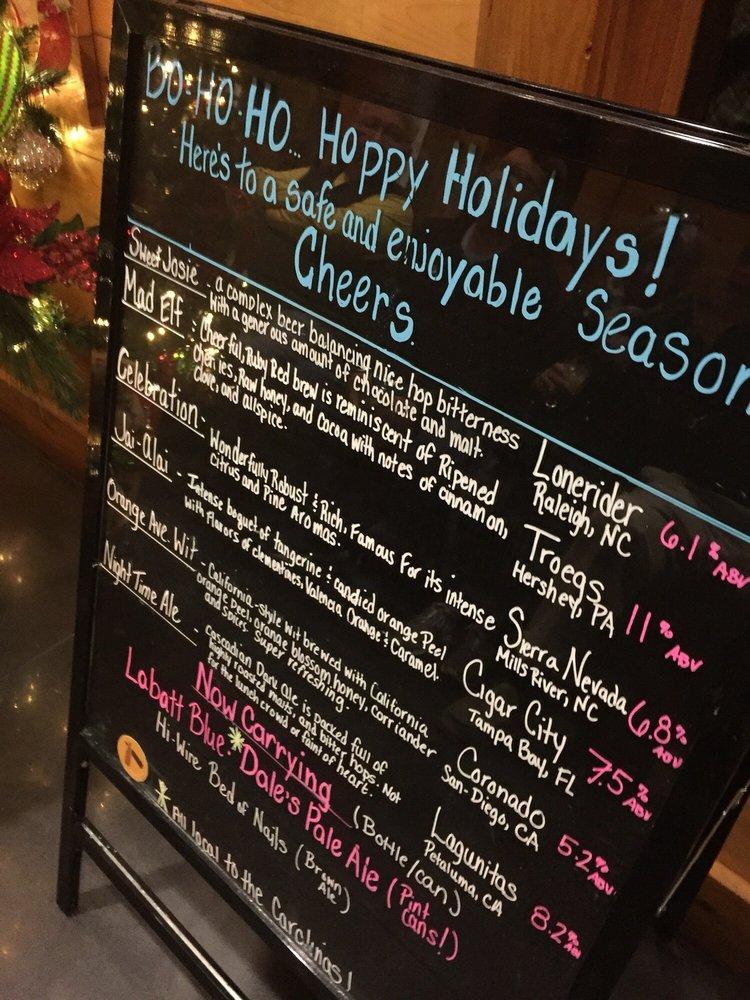 BO·HO·HO... Hoppy Holidays!
Here's to a safe and enjoyable Season
Cheers.
Sweet Josie - a complex beer balancing nice hop bitterness
with a generous amount of chocolate and malt.
Lonerider
Raleigh, NC
6.1% ABV
Mad Elf - Cheerful, Ruby Red brew is reminiscent of Ripened
cherries, Raw honey, and cocoa with notes of cinnamon,
clove, and allspice.
Troegs
Hershey, PA
11% ABV
Celebration - Wonderfully Robust & Rich, Famous For its intense
citrus and Pine Aromas.
Sierra Nevada
Mills River, NC
6.8% ABV
Jai-Alai - Intense boquet of tangerine & candied orange Peel
with flavors of clementines, Valencia Orange & Caramel.
Cigar City
Tampa Bay, FL
7.5% ABV
Orange Ave. Wit - California-style wit brewed with California
orange peel, orange blossom honey, corriander
and spices. Super refreshing.
Coronado
San-Diego, CA
5.2% ABV
Night Time Ale - Cascadian Dark Ale is packed full of
highly roasted malts and bitter hops. Not
for the lunch crowd or faint of heart.
Lagunitas
Petaluma, CA
8.2% ABV
Now Carrying (Bottle/can)
Labatt Blue · Dale's Pale Ale (Pint cans!)
Hi-Wire Bed of Nails (Brown Ale)
All local to the Carolinas!